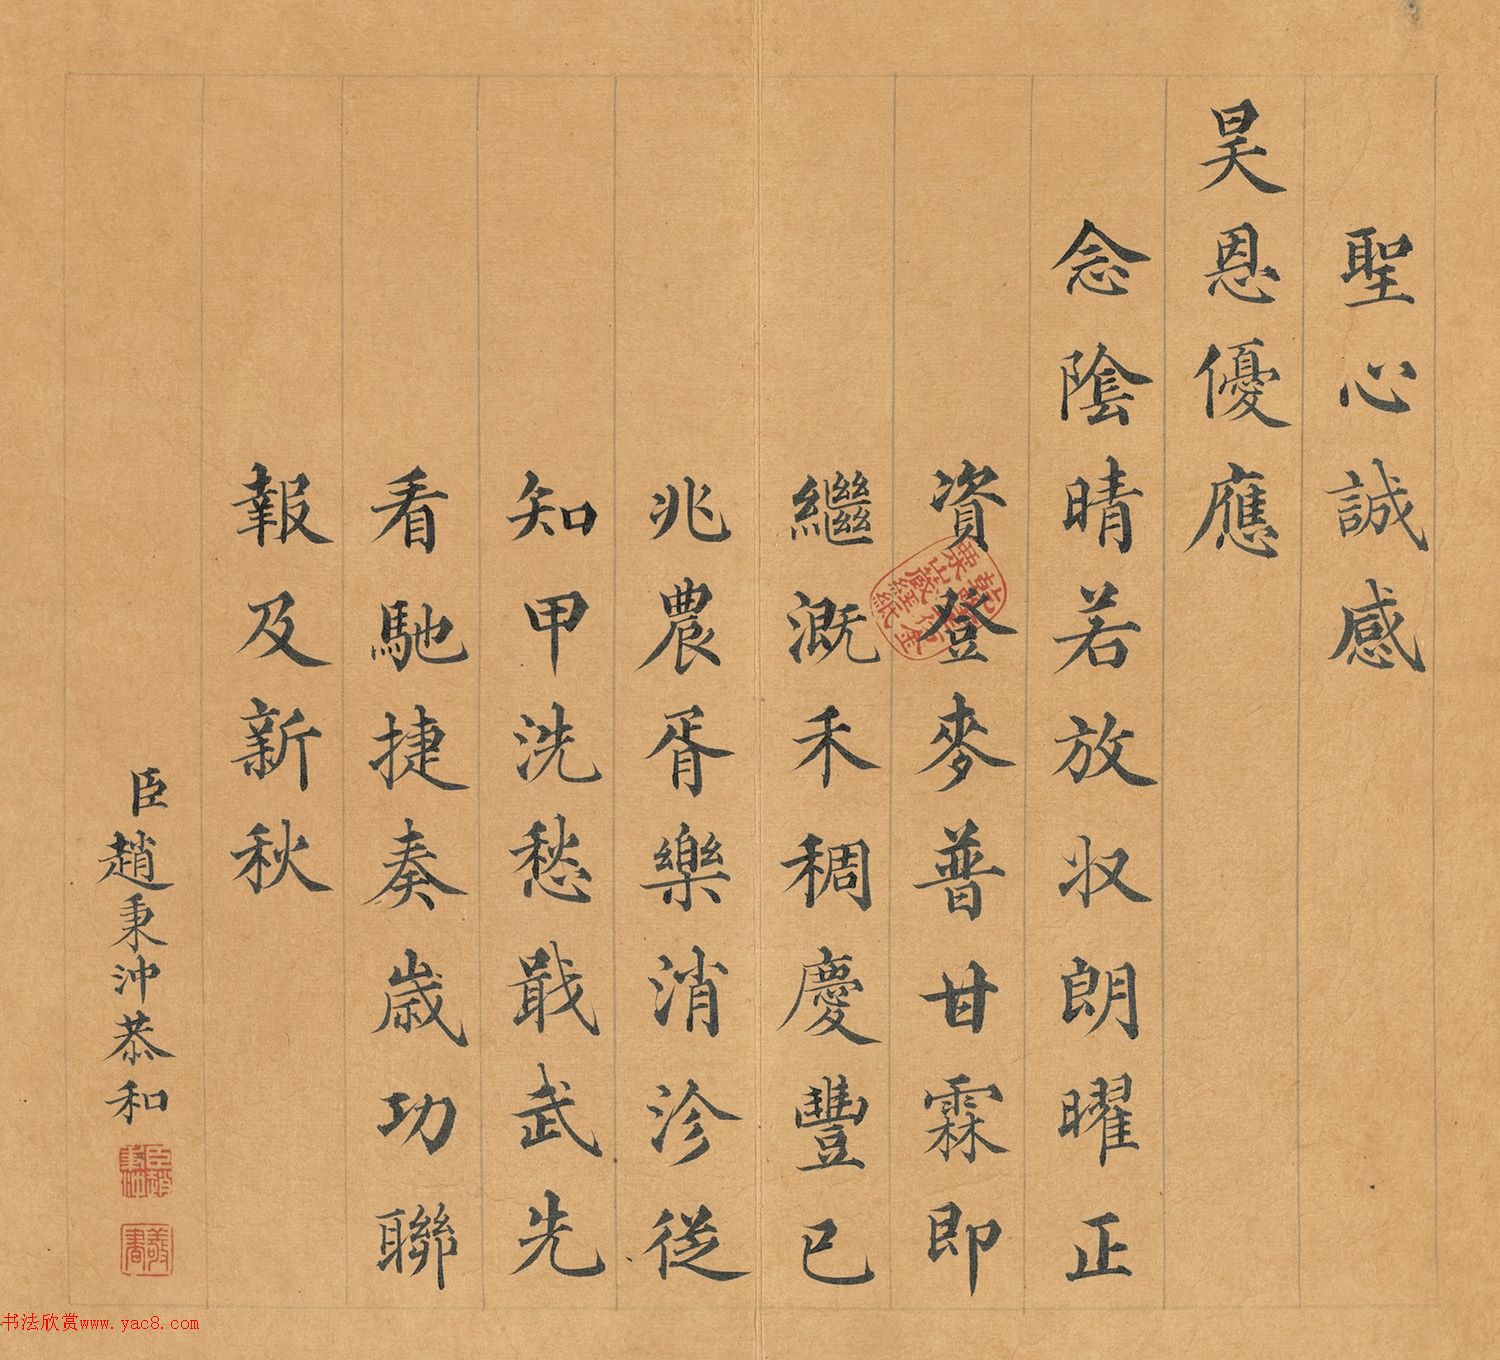 聖心誠感
昊恩優應
念陰晴若放収朗曜正
資登麥普甘霖即
繼溉禾稠慶豐已
兆農胥樂消沴從
知甲洗愁戢武先
看馳捷奏歲功聯
報及新秋
臣趙秉沖恭和
乾隆年仿金
粟山藏經紙
书法欣赏www.yac8.com